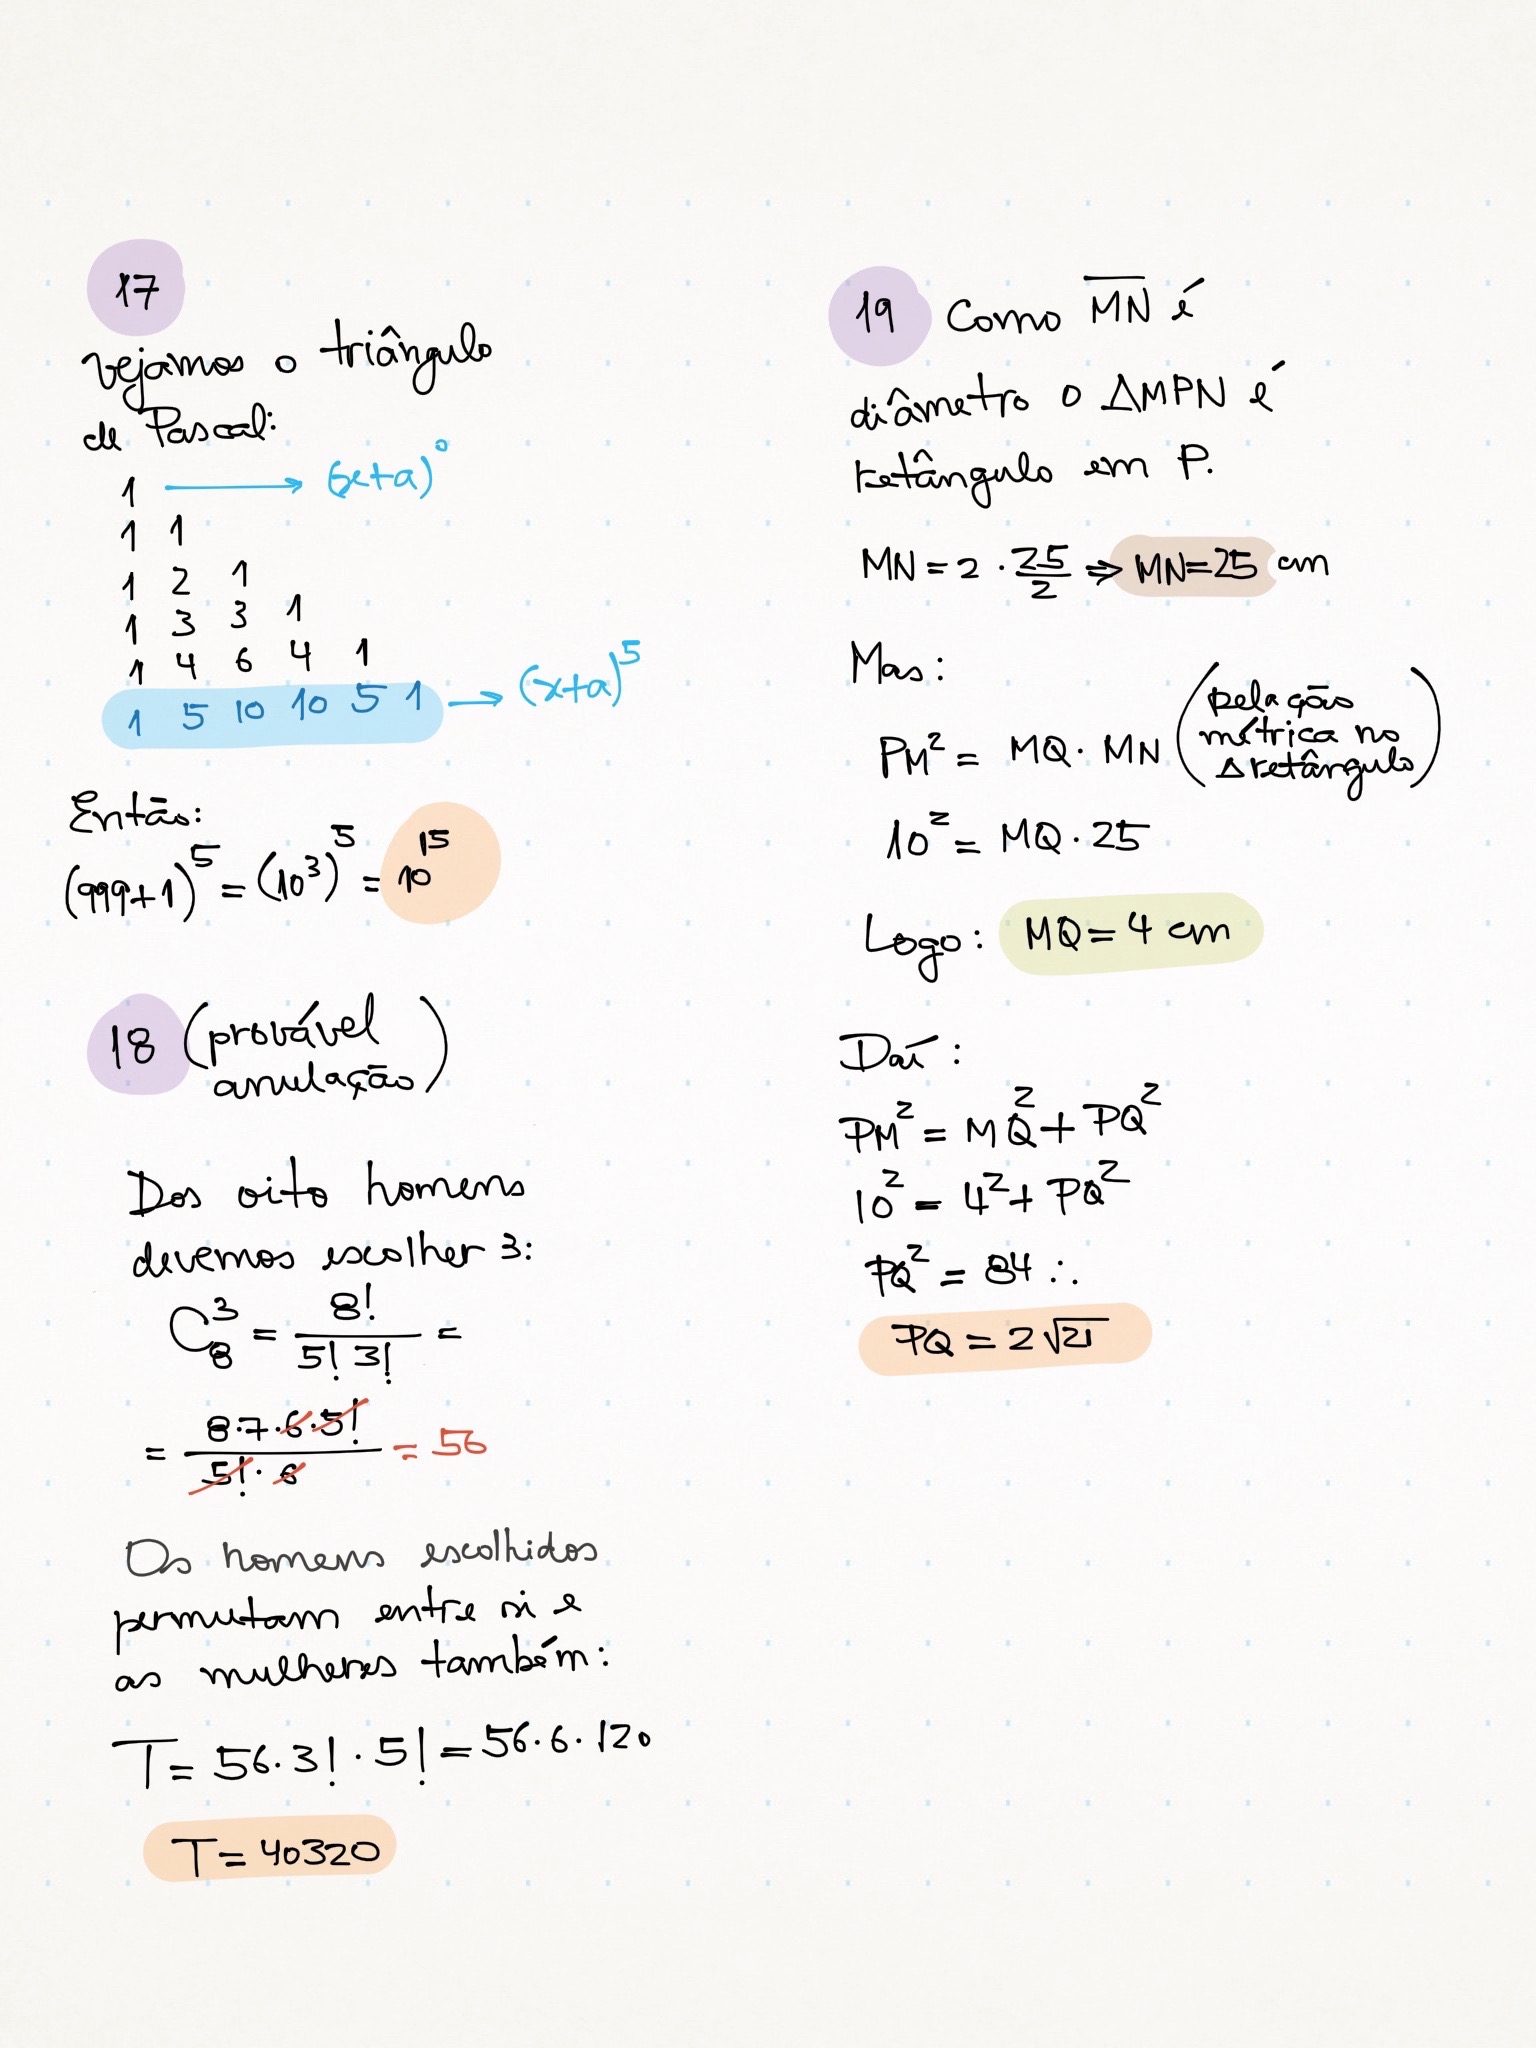 17
Vejamos o triângulo
de Pascal:
1 → (x+a)⁰
1 1
1 2 1
1 3 3 1
1 4 6 4 1
1 5 10 10 5 1 → (x+a)⁵
Então:
(999+1)⁵ = (10³)⁵ = 10¹⁵
18 (provável
anulação)
Dos oito homens
devemos escolher 3:
C₈³ = 8!/(5! 3!) =
= (8·7·6·5!)/(5!·6) = 56
Os homens escolhidos
permutam entre si e
as mulheres também:
T = 56·3!·5! = 56·6·120
T = 40320
19 Como M̅N̅ é
diâmetro o ΔMPN é
retângulo em P.
MN = 2 · 25/2 ⇒ MN=25 cm
Mas:
PM² = MQ · MN (relação
métrica no
Δ retângulo)
10² = MQ · 25
Logo: MQ = 4 cm
Daí:
PM² = MQ² + PQ²
10² = 4² + PQ²
PQ² = 84 ∴
PQ = 2√21